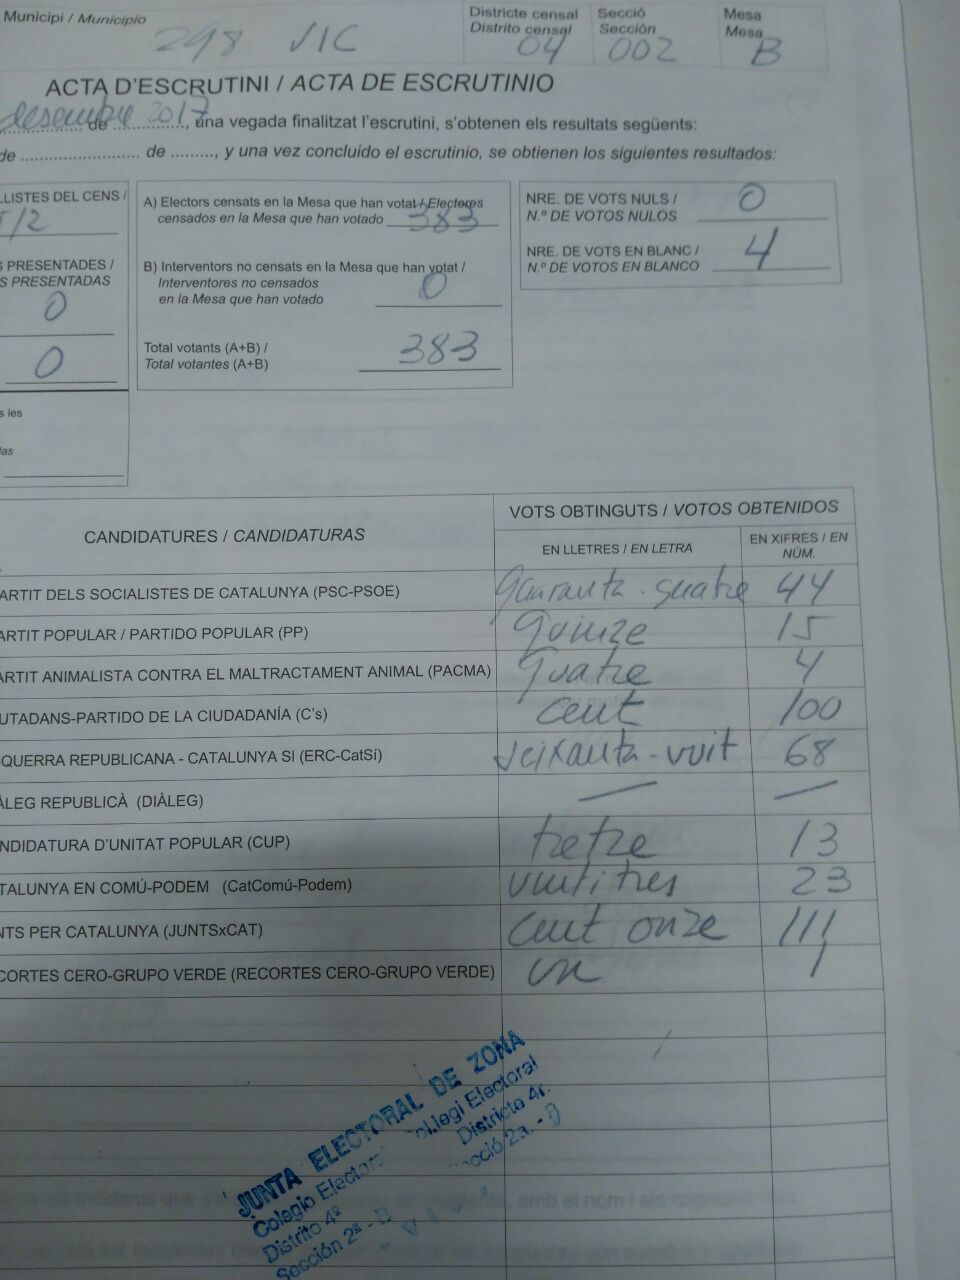 Municipi / Municipio
298 VIC
Districte censal
Distrito censal
04
Secció
Sección
002
Mesa
Mesa
B
ACTA D'ESCRUTINI / ACTA DE ESCRUTINIO
desembre de 2017, una vegada finalitzat l'escrutini, s'obtenen els resultats següents:
de ........................ de ........., y una vez concluido el escrutinio, se obtienen los siguientes resultados:
LLISTES DEL CENS /
S PRESENTADES /
S PRESENTADAS
0
0
s les
las
A) Electors censats en la Mesa que han votat / Electores
censados en la Mesa que han votado 383
B) Interventors no censats en la Mesa que han votat /
Interventores no censados
en la Mesa que han votado 0
Total votants (A+B) /
Total votantes (A+B) 383
NRE. DE VOTS NULS /
N.º DE VOTOS NULOS 0
NRE. DE VOTS EN BLANC /
N.º DE VOTOS EN BLANCO 4
CANDIDATURES / CANDIDATURAS
VOTS OBTINGUTS / VOTOS OBTENIDOS
EN LLETRES / EN LETRA
EN XIFRES / EN
NÚM.
ARTIT DELS SOCIALISTES DE CATALUNYA (PSC-PSOE) quaranta-quatre 44
ARTIT POPULAR / PARTIDO POPULAR (PP) quinze 15
ARTIT ANIMALISTA CONTRA EL MALTRACTAMENT ANIMAL (PACMA) quatre 4
UTADANS-PARTIDO DE LA CIUDADANÍA (C's) cent 100
QUERRA REPUBLICANA - CATALUNYA SI (ERC-CatSí) seixanta-vuit 68
ÀLEG REPUBLICÀ (DIÀLEG) — —
NDIDATURA D'UNITAT POPULAR (CUP) tretze 13
TALUNYA EN COMÚ-PODEM (CatComú-Podem) vintitres 23
NTS PER CATALUNYA (JUNTSxCAT) cent onze 111
CORTES CERO-GRUPO VERDE (RECORTES CERO-GRUPO VERDE) un 1
JUNTA ELECTORAL DE ZONA
Colegio Electoral
Distrito 4º
Sección 2ª - B
Col.legi Electoral
Districte 4r.
Secció 2a. - B
VIC